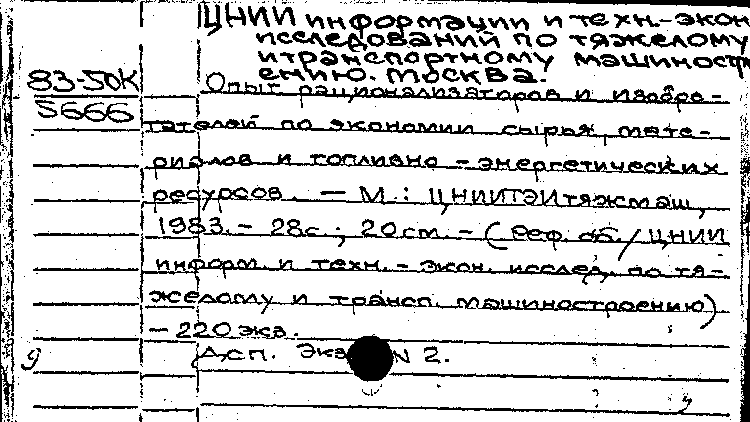 ЦНИИ информации и техн.-экон
исследований по тяжелому
и транспортному машиност
ению. Москва.
83-50К
5666
Опыт рационализаторов и изобре-
тателей по экономии сырья, мате-
риалов и топливно-энергетических
ресурсов. — М.: ЦНИИТЭИтяжмаш,
1983. - 28с.; 20см. - (Реф. об./ЦНИИ
информ. и техн. - экон. исслед. по тя-
желому и трансп. машиностроению)
- 220 экз.
Асп. Экз N 2.